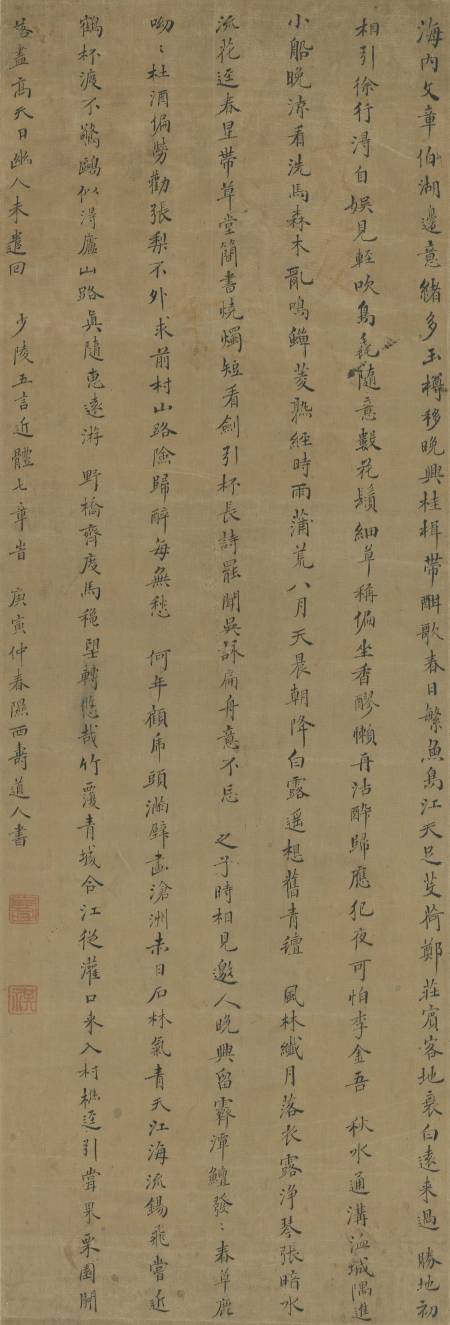 海內文章伯湖邊意緒多玉樽移晚興桂楫帶酣歌春日繁魚鳥江天足芰荷鄭莊賓客地衰白遠來過 勝地初
相引徐行得自娛見輕吹鳥毳隨意數花鬚細草稱偏坐香醪懶再沽醉歸應犯夜可怕李金吾 秋水通溝洫城隅進
小船晚涼看洗馬森木亂鳴蟬菱熟經時雨蒲荒八月天晨朝降白露遙想舊青氈 風林纖月落衣露淨琴張暗水
流花逕春星帶草堂簡書燒燭短看劍引杯長詩罷聞吳詠扁舟意不忘 之子時相見邀人晚興留霽潭鱣發〻春草鹿
呦〻杜酒偏勞勸張梨不外求前村山路險歸醉每無愁 何年顧虎頭滿壁畫滄洲赤日石林氣青天江海流錫飛嘗近
鶴杯渡不驚鷗似得廬山路真隨惠遠游 野橋齊度馬秋望轉悠哉竹覆青城合江從灌口來入村樵逕引嘗果栗園開
落盡高天日幽人未遣回 少陵五言近體七章省 庚寅仲春隰西壽道人書